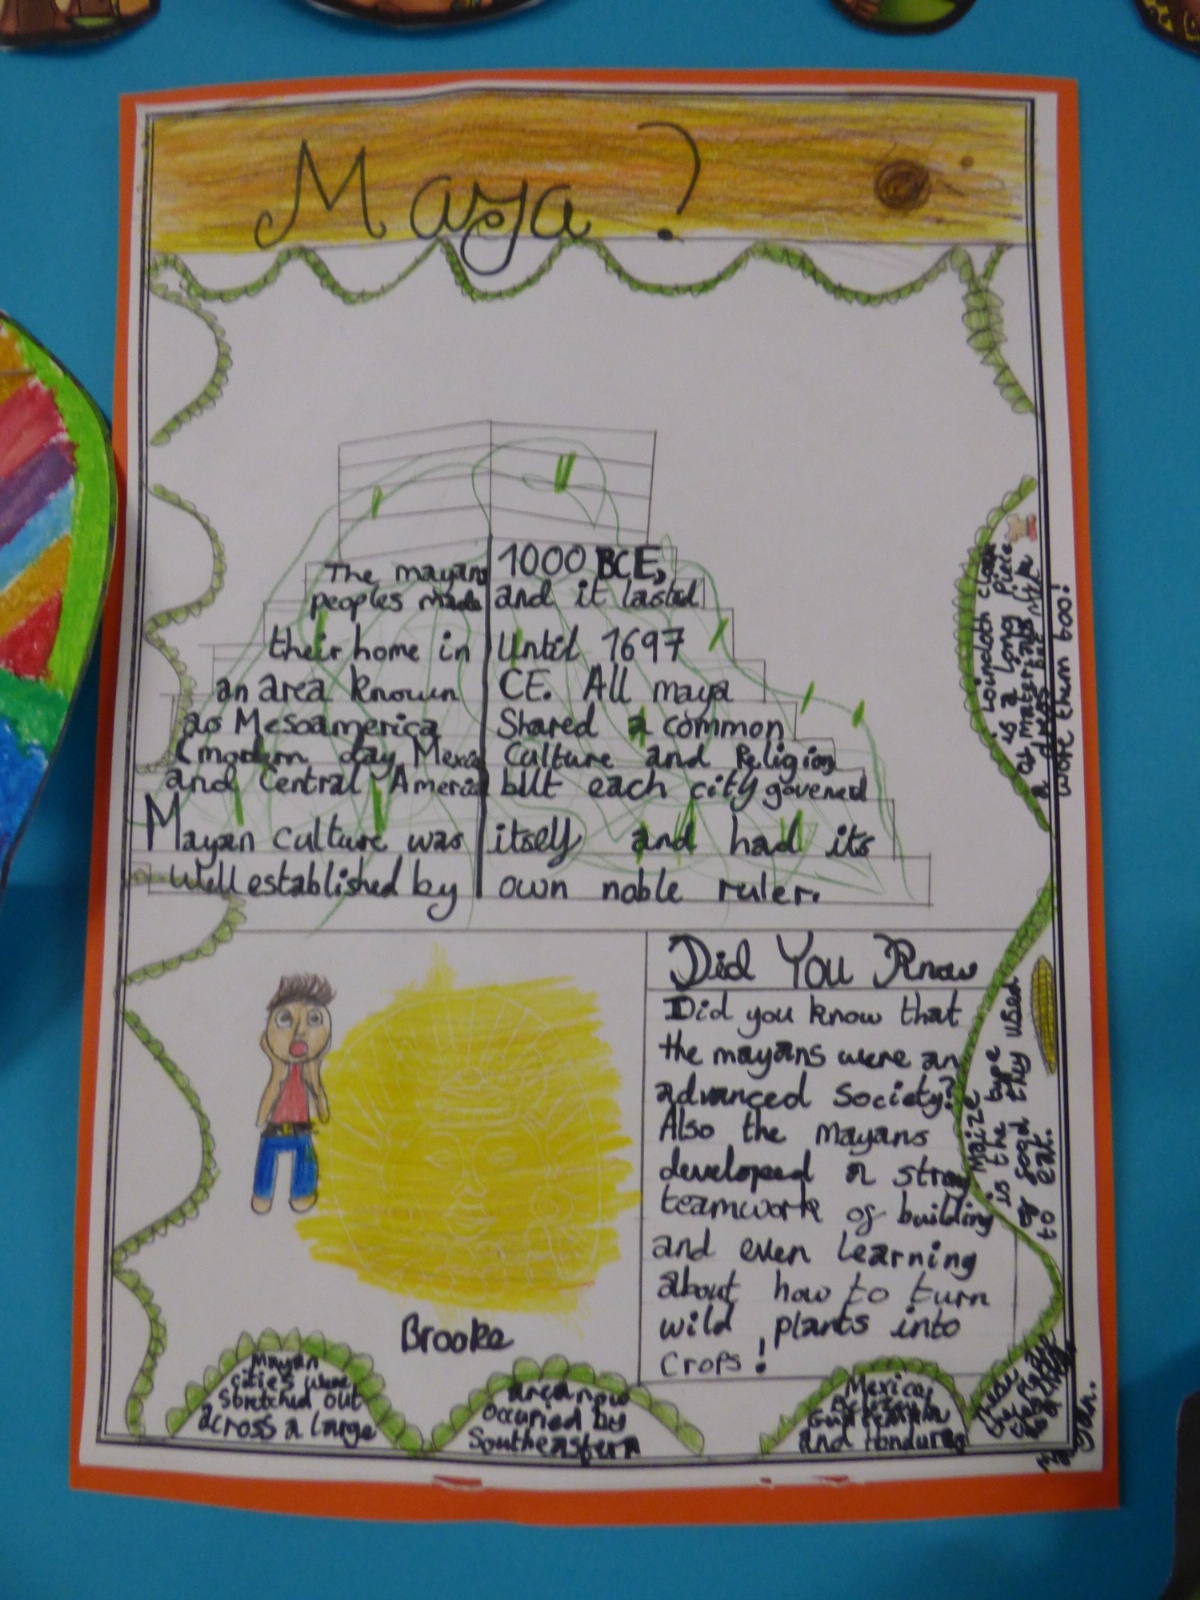 Maya?
The mayans
peoples made
their home in
an area known
as Mesoamerica
(modern day Mexico
and Central America
Mayan culture was
Well established by
1000 BCE,
and it lasted
Until 1697
CE. All maya
Shared a common
Culture and Religion
but each city governed
itself and had its
own noble ruler.
Brooke
Did You Know
Did you know that
the mayans were an
advanced society?
Also the Mayans
developed a strong
teamwork of building
and even learning
about how to turn
wild plants into
Crops!
Mayan
cities were
Stretched out
across a large
area now
occupied by
Southeastern
Mexico,
Guatemala
and Honduras
is a long piece
of material
a dress
wore them too!
Maize
is the type
of food they used
to eat.